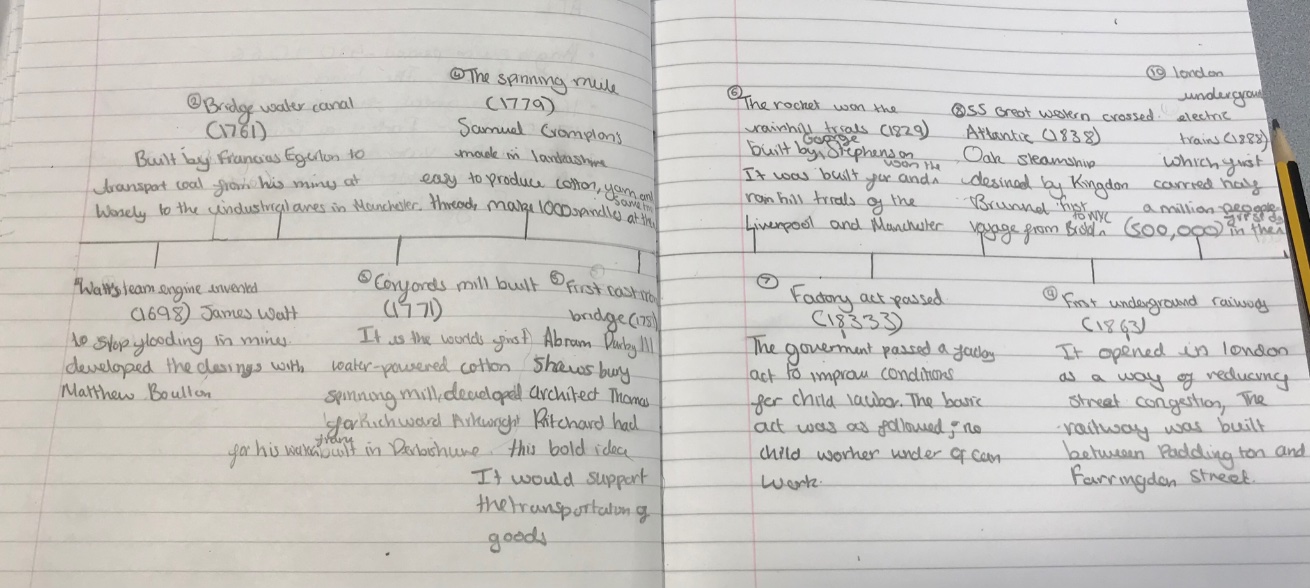 ② Bridge water canal
(1761)
Built by Francias Egerton to
transport coal from his mines at
Worsely to the industrial ares in Manchester.
④ The spinning mule
(1779)
Samuel Cromptons
made in lancashire
easy to produce cotton, yarn and
thread, make 1000 spindles at the
same
① Watt steam engine invented
(1698) James Watt
to stop flooding in mines
developed the desings with
Matthew Boulton
③ Conyords mill built
(1771)
It is the worlds first
water-powered cotton
spinning mill, developed
for Richward Arkwright
for his built in Derbshire
⑤ First cast iron
bridge (175
Abram Darby III
Shawsbury
architect Thomas
Pritchard had
this bold idea
It would support
the transportation of
goods
⑥ The rocket won the
rainhill treals (1829)
built by George Stephenson
It was built for and won the
rain hill trials of the
Liverpool and Manchester
⑧ SS Great western crossed
Atlantic (1838)
Oak steamship
desined by Kingdon
Brunnel first
voyage from to NYC
⑩ london
undergroun
electric
trains (1888)
which first
carried half
a million people
(500,000) in the
⑦ Factory act passed
(18333)
The goverment passed a factory
act to improve conditions
for child laubor. The basic
act was as followed; no
child worker under 9 can
work.
⑨ First underground railway
(1863)
It opened in london
as a way of reducing
street congestion, The
railway was built
between Paddington and
Farringdon Street.